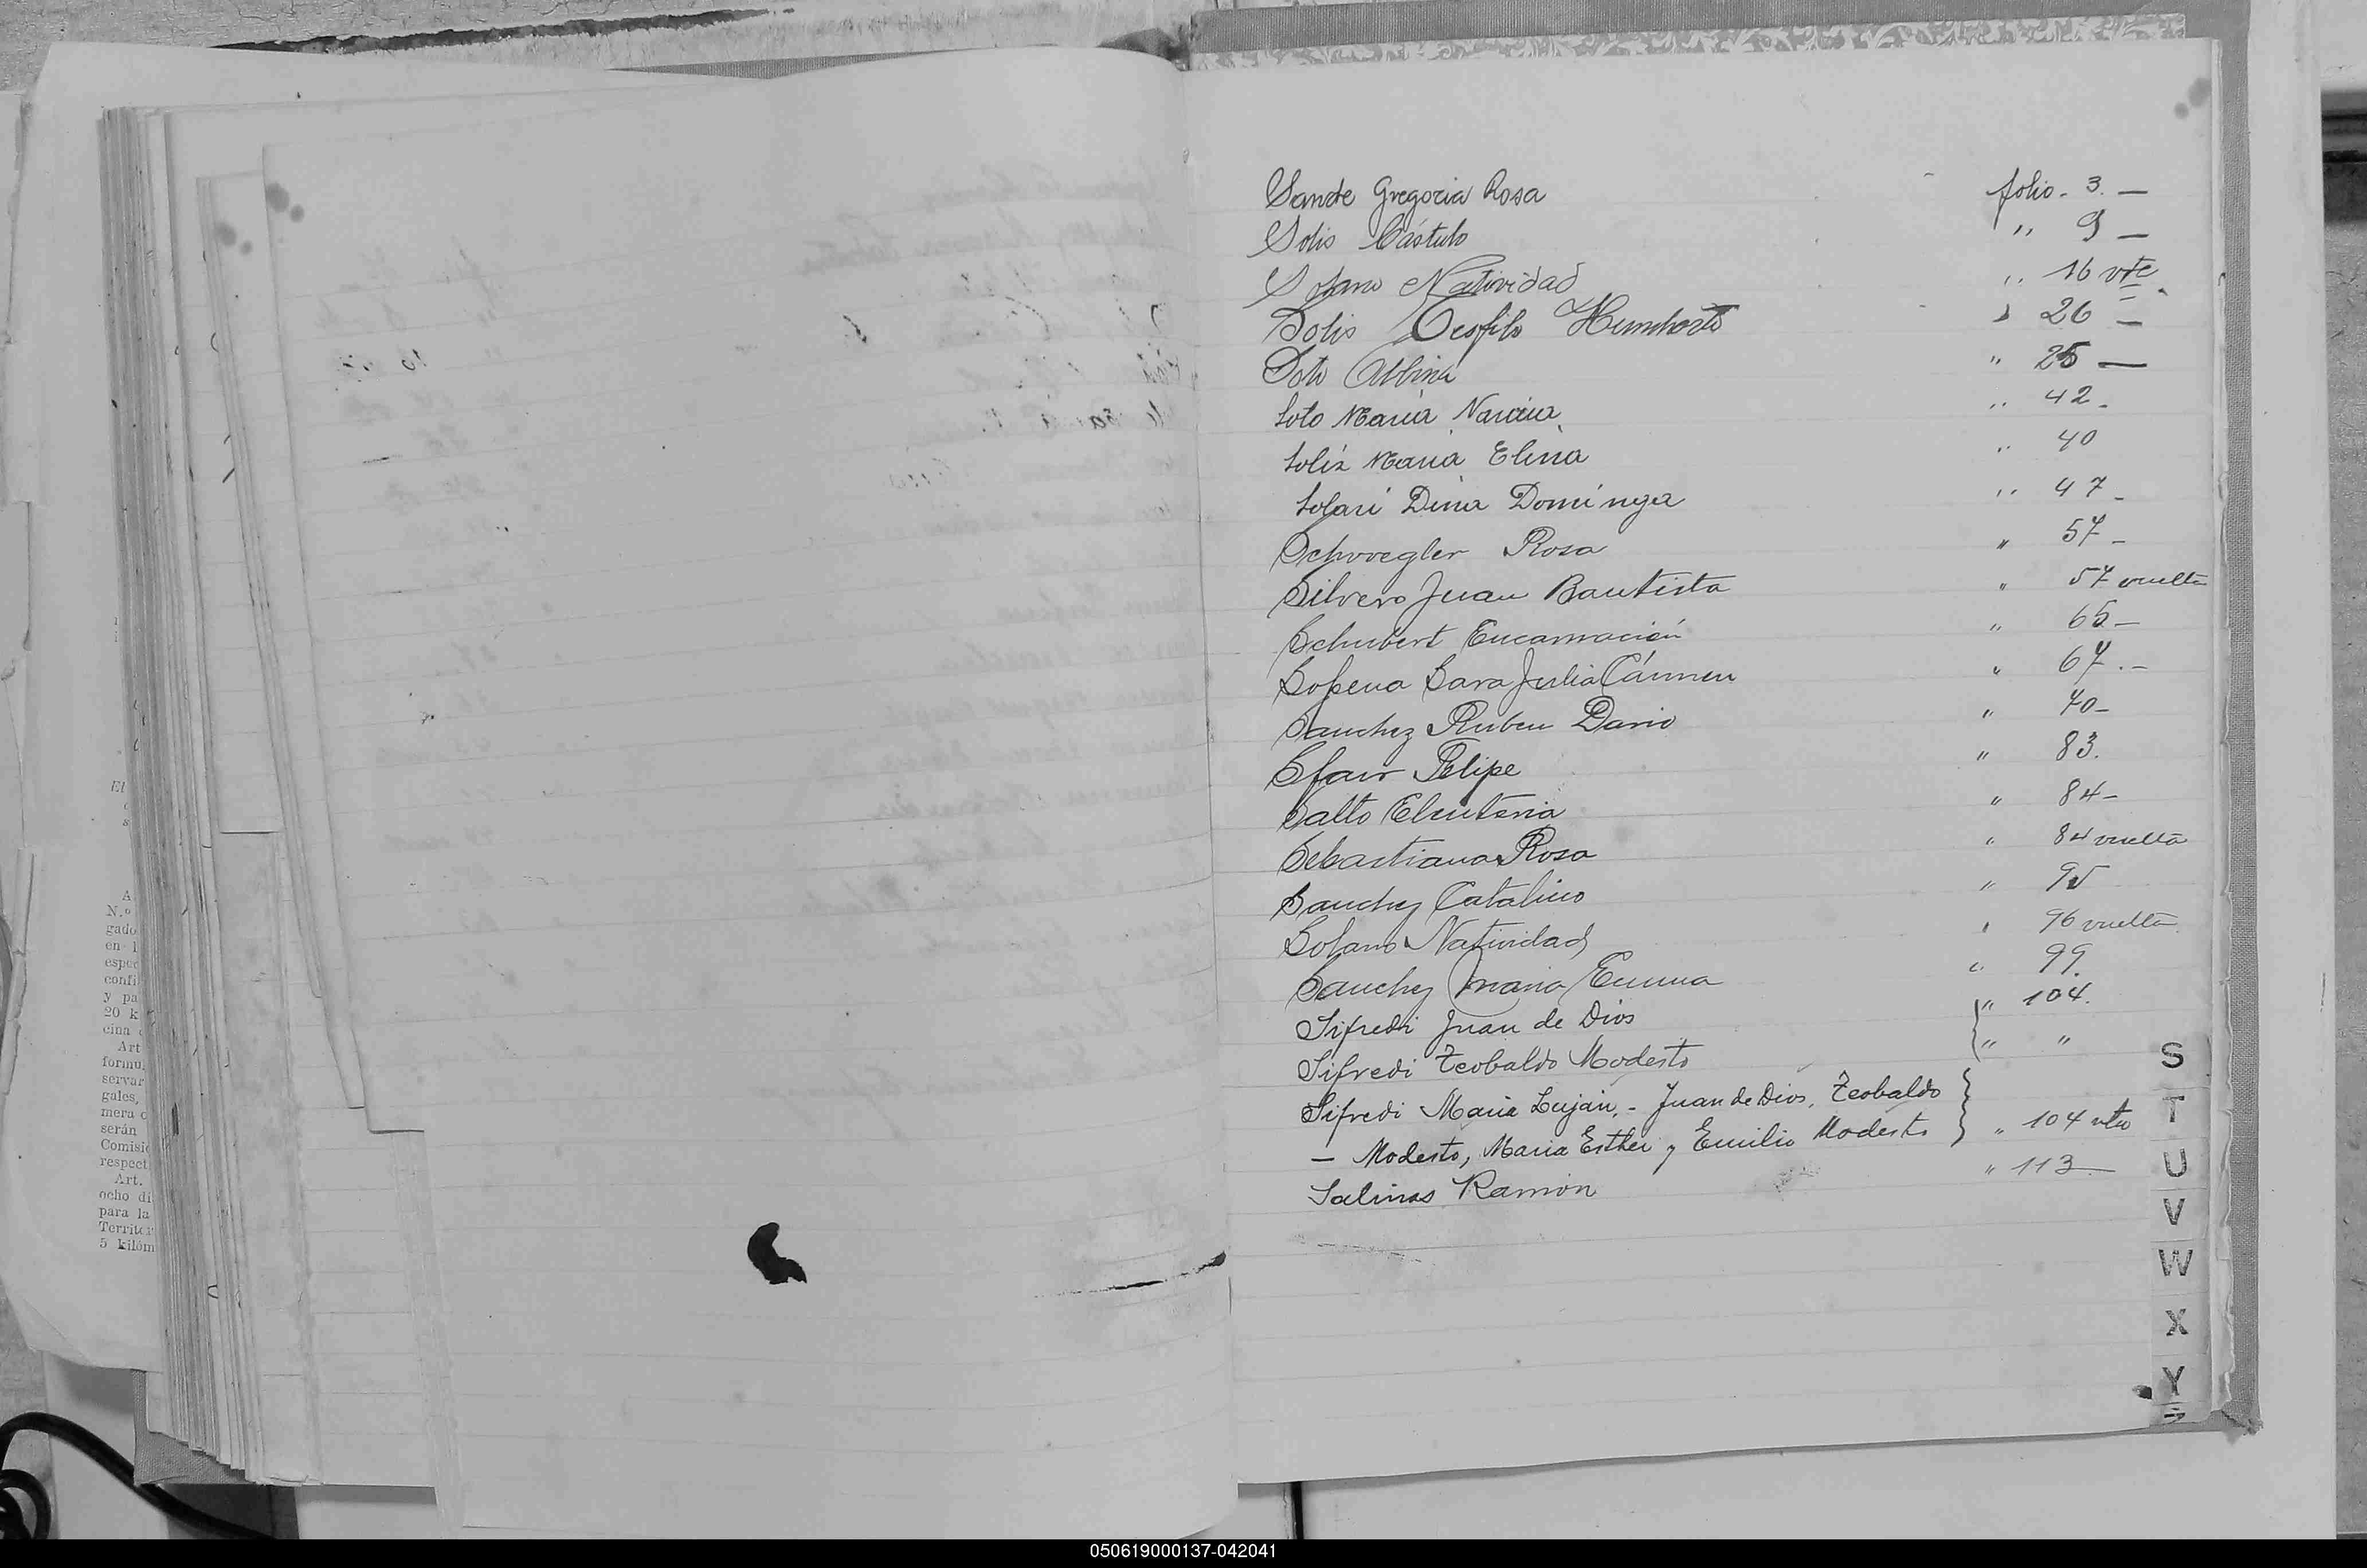 El
A
N.º
gado
en l
espec
confi
y pa
20 k
cina
Art
formu
servar
gales,
mera c
serán
Comisi
respect
Art.
ocho di
para la
Territor
5 kilóm
Sande Gregoria Rosa folio - 3. —
Solis Cástulo " 9 —
Solano Natividad " 16 vte
Solis Teofilo Humberto " 26 —
Soto Albina " 25 —
Soto Maria Narcisa " 42 -
Solis Maria Elina " 40
Solari Dina Dominga " 47 -
Schvvegler Rosa " 57 -
Silvero Juan Bautista " 57 vuelta
Schubert Encarnación " 65 —
Sopena Sara Julia Cármen " 67. —
Sanchez Ruben Dario " 70 -
Sfair Felipe " 83.
Salto Eleuteria " 84 -
Sebastiana Rosa " 84 vuelta
Sanchez Catalino " 95
Solano Natividad " 96 vuelta
Sanchez Maria Emma " 99.
Sifredi Juan de Dios " 104.
Sifredi Teobaldo Modesto " "
Sifredi Maria Luján, - Juan de Dios, Teobaldo
— Modesto, Maria Esther y Emilio Modesto " 104 vto
Salinas Ramón " 113 —
S
T
U
V
W
X
Y
050619000137-042041